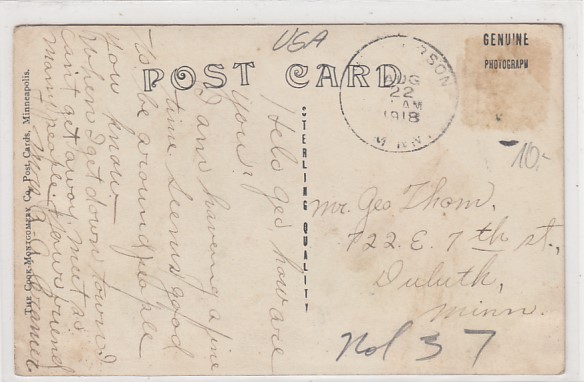 USA
POST CARD
GENUINE
PHOTOGRAPH
AUG
22
AM
1918
MINN.
10.-
Helo Geo how are
you?
I am having a fine
time Seems good
to be around people
you know
When I get down town I
can't get away, meet so
many people your friend
Cramer
STERLING QUALITY
Mr. Geo Thom,
722. E. 7th st.,
Duluth,
Minn.
Nol 37
THE COOK-MONTGOMERY CO. Post Cards, Minneapolis.